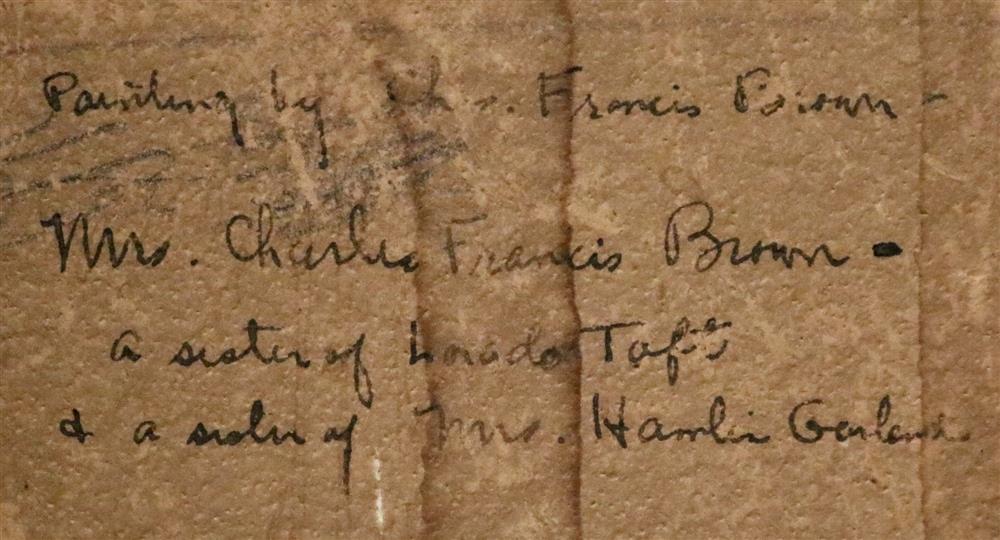 Painting by Chas. Francis Brown -
Mrs. Charles Francis Brown -
a sister of Lorado Taft
& a sister of Mrs. Hamlin Garland